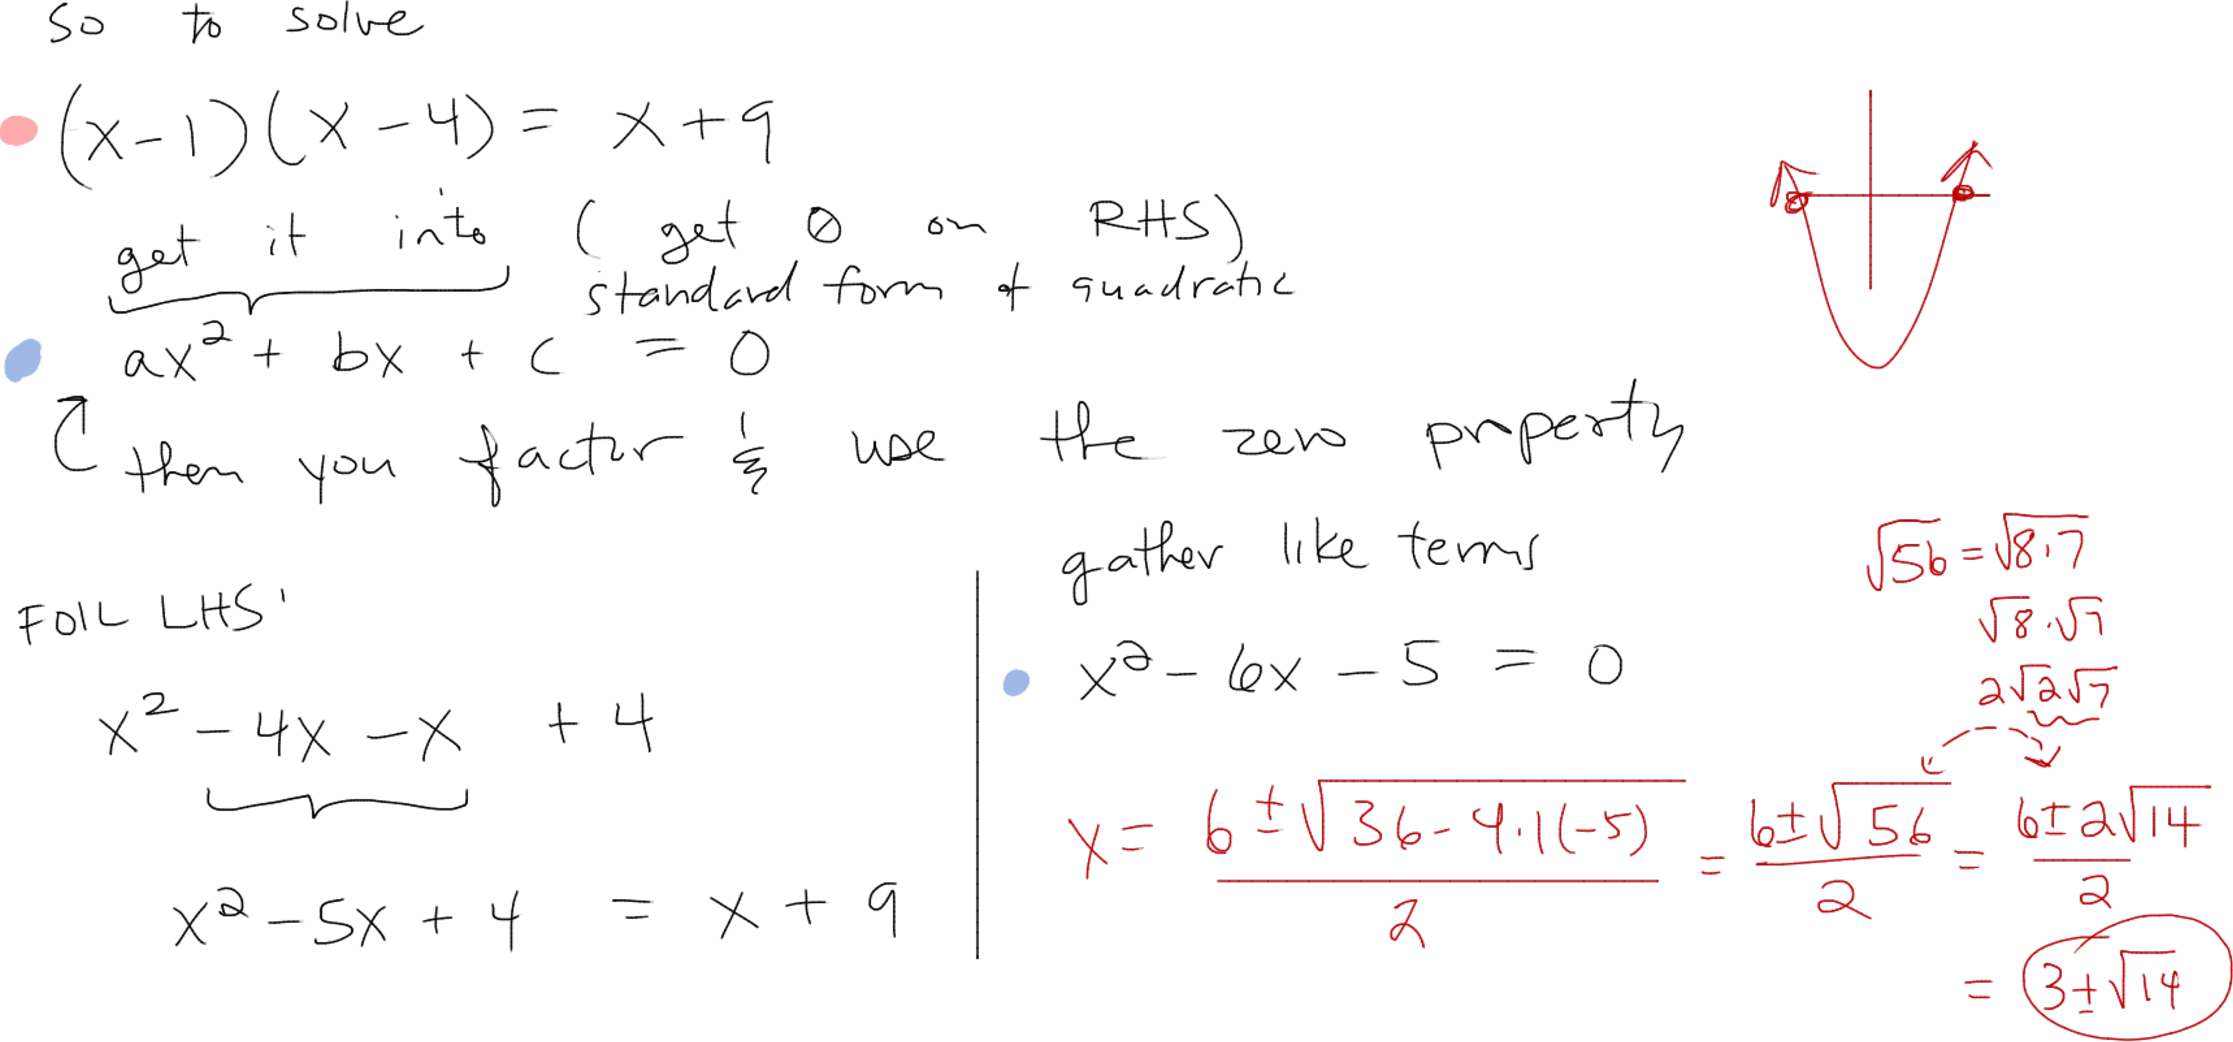 so to solve
(x-1)(x-4) = x+9
get it into (get 0 on RHS)
standard form of quadratic
ax² + bx + c = 0
then you factor & use the zero property
FOIL LHS
x² - 4x - x + 4
x² - 5x + 4 = x + 9
gather like terms
x² - 6x - 5 = 0
√56 = √8·7
√8·√7
2√2√7
x = (6 ± √36 - 4·1(-5))/2 = (6 ± √56)/2 = (6 ± 2√14)/2
= 3 ± √14